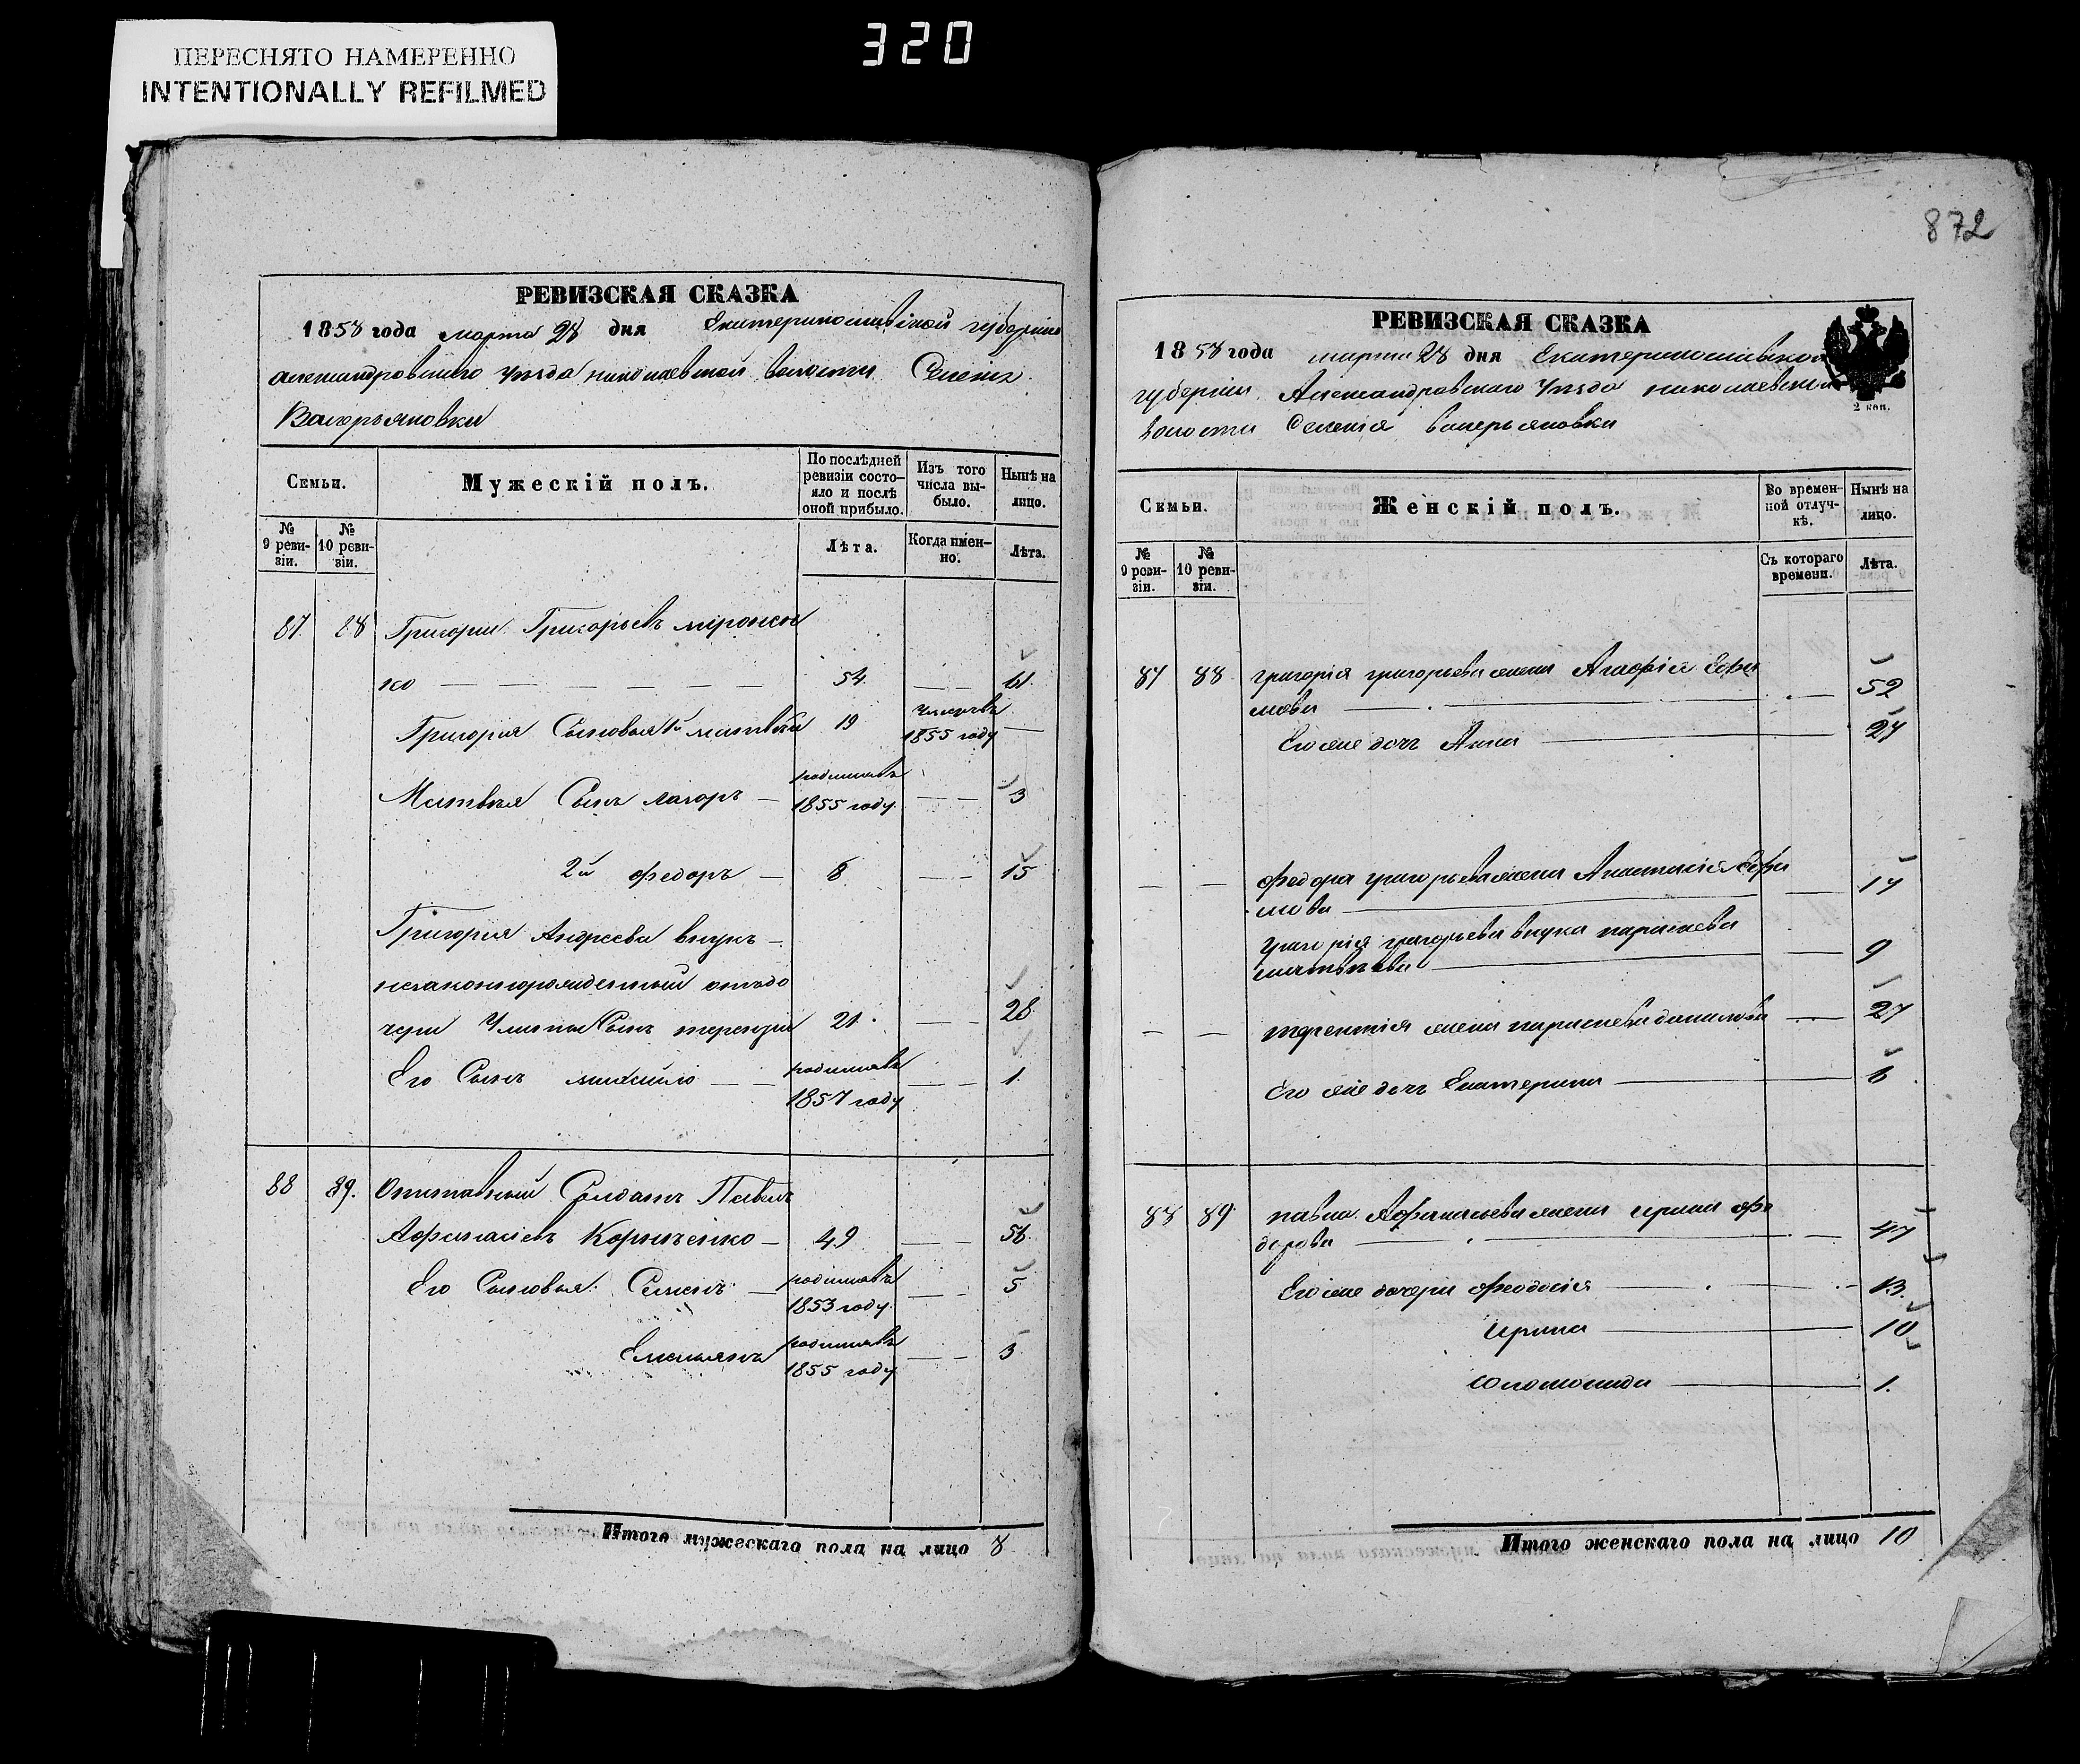 ПЕРЕСНЯТО НАМЕРЕННО
INTENTIONALLY REFILMED
320
РЕВИЗСКАЯ СКАЗКА
1858 года марта 28 дня Екатеринославской губерніи
Александровскаго уѣзда николаевской волости Селенія
Валерьяновки
Семьи. Мужескій полъ. По послѣдней ревизіи состояло и послѣ оной прибыло. Изъ того числа выбыло. Нынѣ на лицо.
№ 9 ревизіи. № 10 ревизіи. Лѣта. Когда имен-но. Лѣта.
87 88 Григорій Григорьевъ мірошен
ко 54 61
Григорія Сыновья 1й матвѣй 19 умеръ въ 1855 году
Матвѣя Сынъ лазоръ родился въ 1855 году 3
2й федоръ 8 15
Григорія Андреева внукъ
незаконнорожденный отъ до
чери Сынъ терентій 21 28
Его Сынъ михайло родился въ 1857 году 1
88 89. Отставный Солдатъ Павелъ
Афанасіевъ Корниенко 49 56
Его Сыновья Семенъ родился въ 1853 году 5
Емельянъ родился въ 1855 году 3
Итого мужескаго пола на лицо 8
872
РЕВИЗСКАЯ СКАЗКА
1858 года марта 28 дня Екатеринославской
губерніи Александровскаго уѣзда николаевской
волости Селенія валерьяновки
2 коп.
Семьи. Женскій полъ. Во времен-ной отлуч-кѣ. Нынѣ на лицо.
№ 9 ревизіи. № 10 ревизіи. Съ котораго времени. Лѣта.
87 88 григорія григорьева жена Агафія Ефи
мова 52
Его же дочь Анна 27
федора григорьева жена Анастасія Ефи
мова 17
григорія григорьева внука параскева
матвѣева 9
терентія жена параскева данилова 27
Его же дочь Екатерина 6
88 89 павла Афанасьева жена ирина фе
дорова 47
Его же дочери феодосія 13
ирина 10
соломонида 1.
Итого женскаго пола на лицо 10